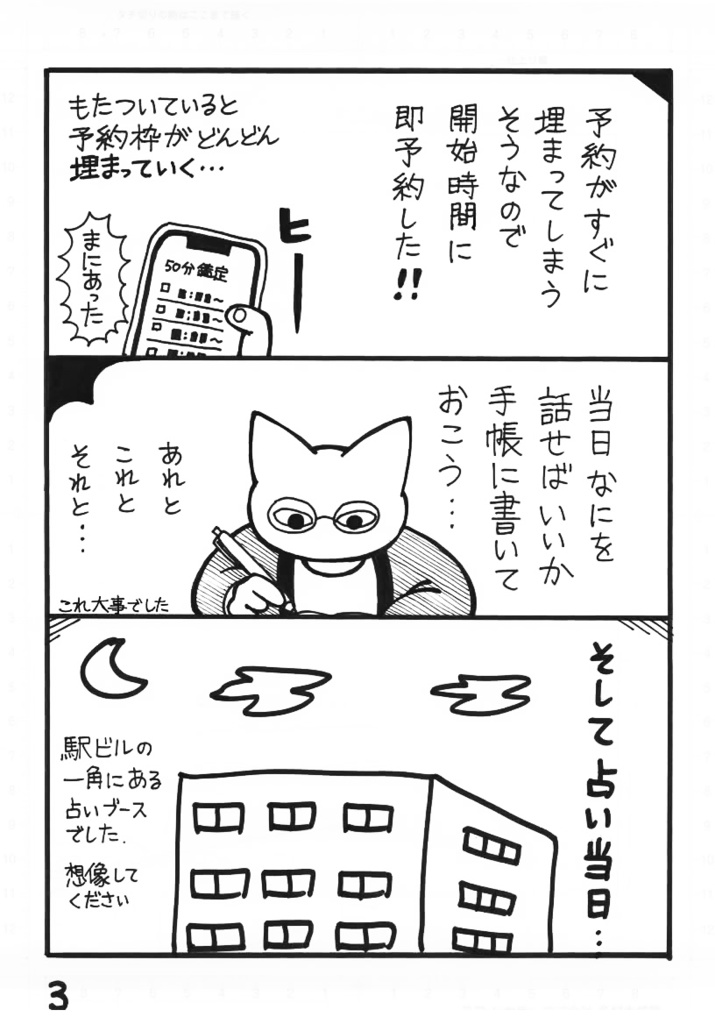 予約がすぐに
埋まってしまう
そうなので
開始時間に
即予約した!!
もたついていると
予約枠がどんどん
埋まっていく…
ヒー
50分鑑定
まにあった
当日なにを
話せばいいか
手帳に書いて
おこう…
あれと
これと
それと…
これ大事でした
そして占い当日…
駅ビルの
一角にある
占いブース
でした.
想像して
ください
3